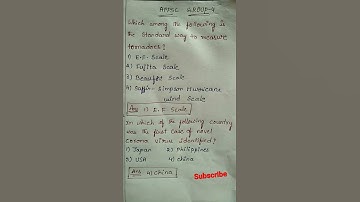 APPSC GROUP-4
Which among the following is
the standard way to measure
tornadoes?
1) E.F. Scale
2) Fujita Scale
3) Beaufort Scale
4) Saffir Simpson Hurricane
wind Scale
Ans 1) E.F. Scale
In which of the following country
was the first case of novel
Corona virus identified?
1) Japan 2) Philippines
3) USA 4) China
Ans: 4) China
Subscribe